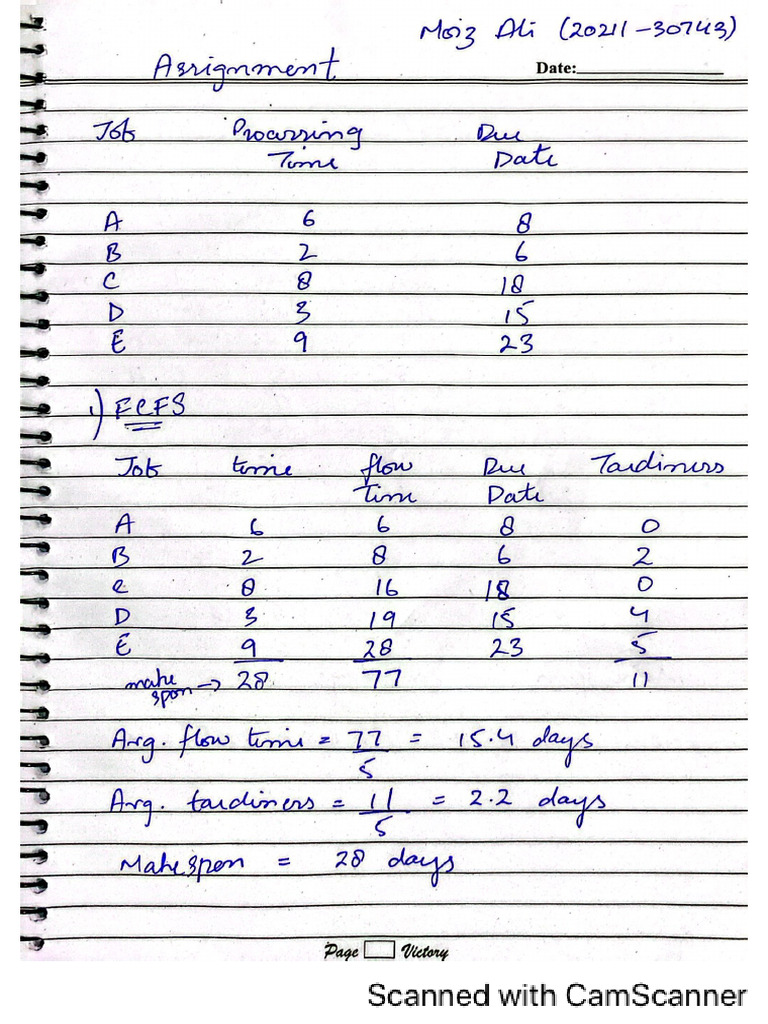 Moiz Ali (20211-30743)
Assignment
Date:
Job Processing Due
Time Date
A 6 8
B 2 6
C 8 18
D 3 15
E 9 23
1) FCFS
Job time flow Due Tardiness
Time Date
A 6 6 8 0
B 2 8 6 2
C 8 16 18 0
D 3 19 15 4
E 9 28 23 5
make span → 28 77 11
Avg. flow time = 77/5 = 15.4 days
Avg. tardiness = 11/5 = 2.2 days
Makespan = 28 days
Page Victory
Scanned with CamScanner